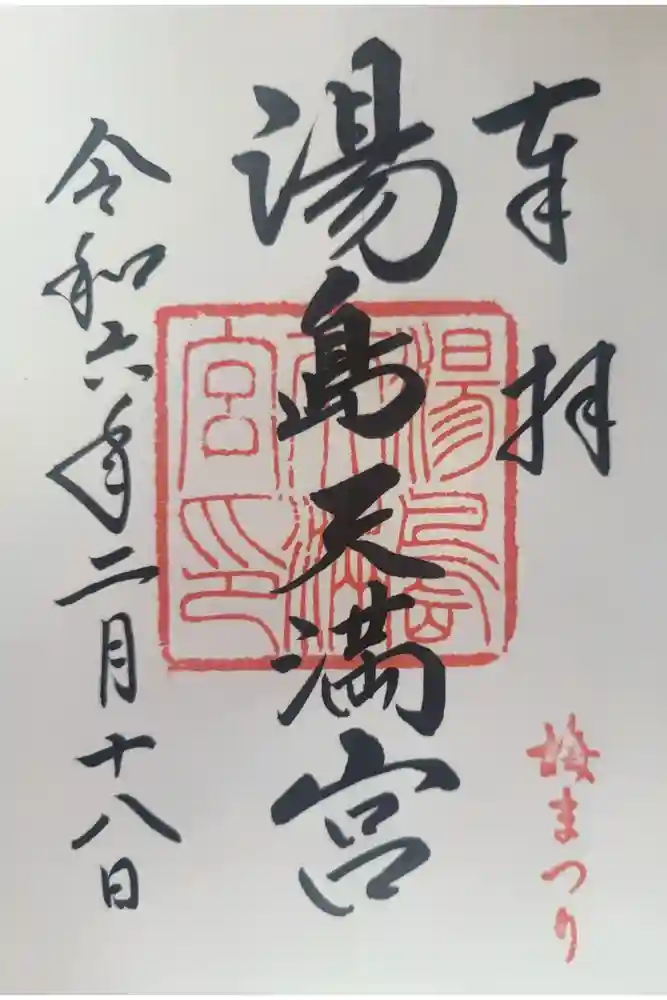 奉拝
梅まつり
湯島天満宮
湯島天満宮印
令和六年二月十八日